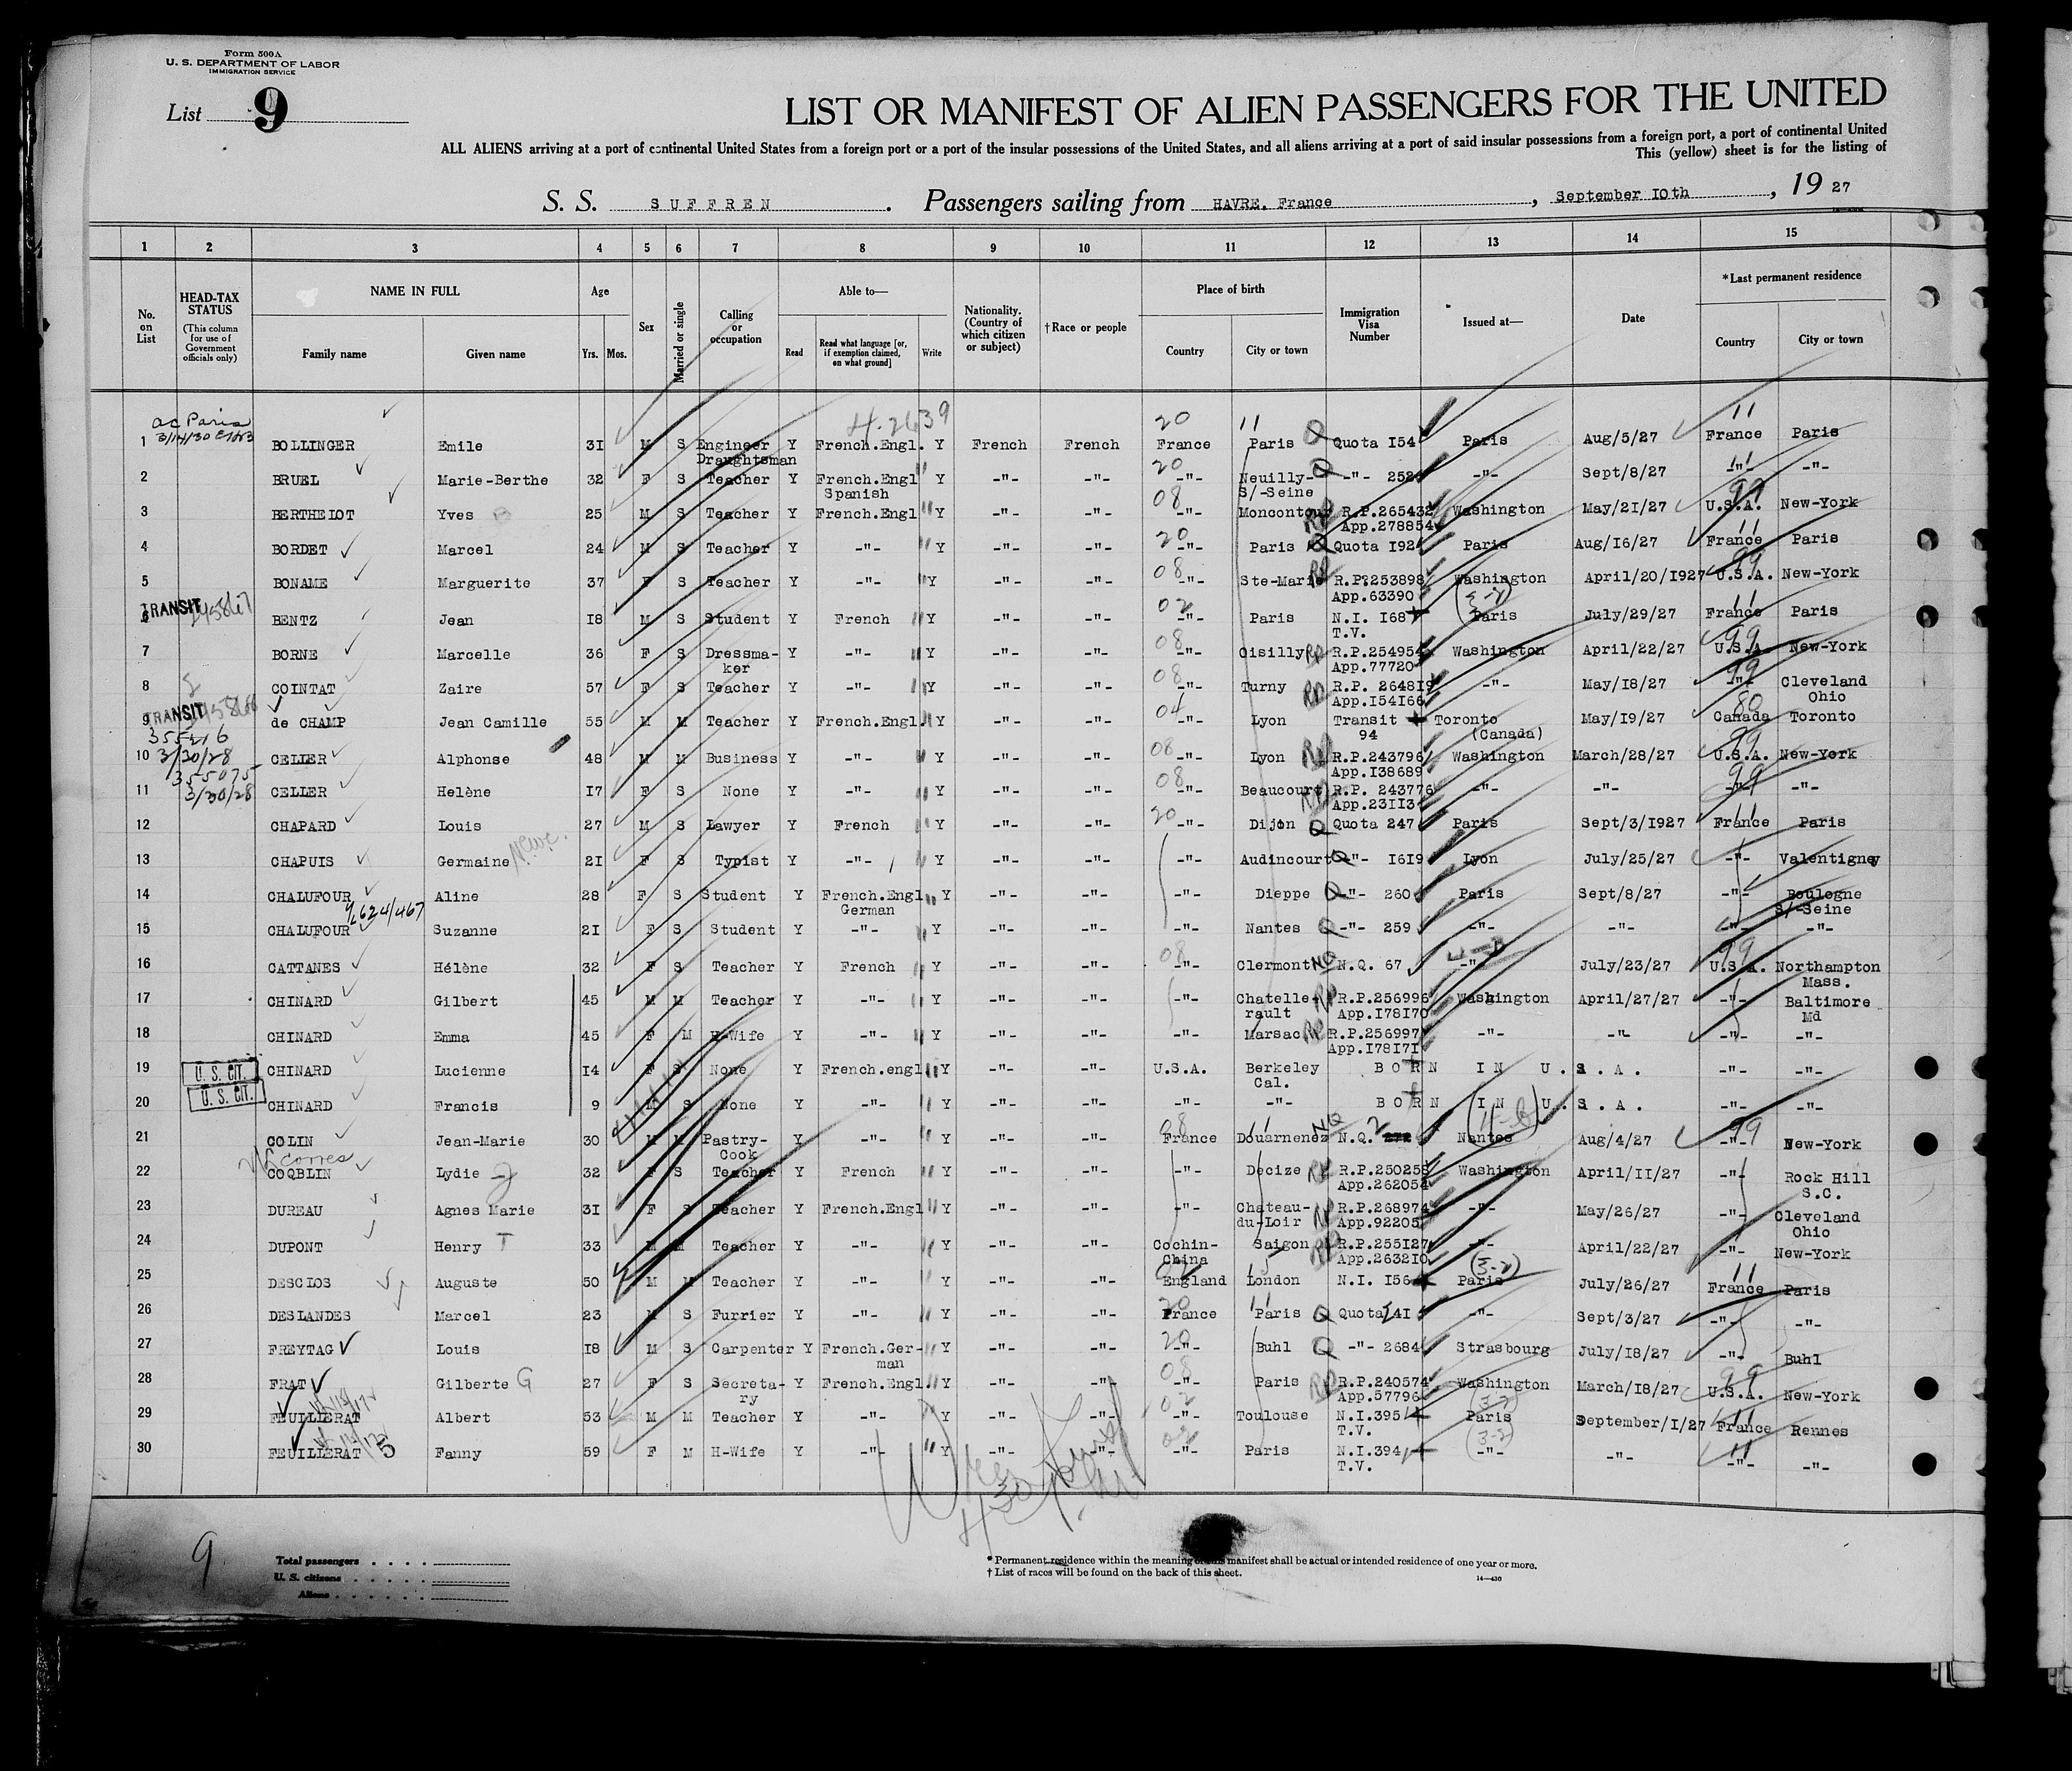 Form 500A
U. S. DEPARTMENT OF LABOR
IMMIGRATION SERVICE
List 9
LIST OR MANIFEST OF ALIEN PASSENGERS FOR THE UNITED
ALL ALIENS arriving at a port of continental United States from a foreign port or a port of the insular possessions of the United States, and all aliens arriving at a port of said insular possessions from a foreign port, a port of continental United
This (yellow) sheet is for the listing of
S. S. SUFFREN. Passengers sailing from HAVRE. France, September 10th, 19 27
1 2 3 4 5 6 7 8 9 10 11 12 13 14 15
No. on List
HEAD-TAX STATUS (This column for use of Government officials only)
NAME IN FULL Family name Given name
Age Yrs. Mos.
Sex
Married or single
Calling or occupation
Able to— Read Read what language [or, if exemption claimed, on what ground] Write
Nationality. (Country of which citizen or subject)
†Race or people
Place of birth Country City or town
Immigration Visa Number
Issued at—
Date
*Last permanent residence Country City or town
ac Paris 4-2639 20 11 11
1 BOLLINGER Emile 31 M S Engineer Draughtsman Y French.Engl. Y French French France Paris Q Quota 154 Paris Aug/5/27 France Paris
2 BRUEL Marie-Berthe 32 F S Teacher Y French.Engl Spanish Y -"- -"- 20 -"- Neuilly-S/-Seine Q -"- 252 -"- Sept/8/27 11 -"- -"-
3 BERTHELOT Yves 25 M S Teacher Y French.Engl Y -"- -"- 08 -"- Moncontour RP R.P.265432 App.278854 Washington May/21/27 99 U.S.A. New-York
4 BORDET Marcel 24 M S Teacher Y -"- Y -"- -"- 20 -"- Paris Q Quota 192 Paris Aug/16/27 11 France Paris
5 BONAME Marguerite 37 F S Teacher Y -"- Y -"- -"- 08 -"- Ste-Marie RP R.P.253898 App.63390 Washington April/20/1927 99 U.S.A. New-York
TRANSIT
6 BENTZ Jean 18 M S Student Y French Y -"- -"- 02 -"- Paris N.I. 168 T.V. (3-2) Paris July/29/27 11 France Paris
7 BORNE Marcelle 36 F S Dressma-ker Y -"- Y -"- -"- 08 -"- Oisilly RP R.P.254954 App.77720 Washington April/22/27 99 U.S.A. New-York
8 COINTAT Zaire 57 F S Teacher Y -"- Y -"- -"- 08 -"- Turny RP R.P. 264819 App.154166 -"- May/18/27 99 -"- Cleveland Ohio
TRANSIT
9 de CHAMP Jean Camille 55 M M Teacher Y French.Engl. Y -"- -"- 04 -"- Lyon Transit 94 Toronto (Canada) May/19/27 80 Canada Toronto
355216
10 3/30/28 CELLER Alphonse 48 M M Business Y -"- Y -"- -"- 08 -"- Lyon RP R.P.243796 App.138689 Washington March/28/27 99 U.S.A. New-York
355075
11 3/30/28 CELLER Helène 17 F S None Y -"- Y -"- -"- 08 -"- Beaucourt RP R.P. 243776 App.23113 -"- -"- 99 -"- -"-
12 CHAPARD Louis 27 M S Lawyer Y French Y -"- -"- 20 -"- Dijon Q Quota 247 Paris Sept/3/1927 11 France Paris
13 CHAPUIS Germaine 21 F S Typist Y -"- Y -"- -"- -"- Audincourt Q -"- 1619 Lyon July/25/27 -"- Valentigney
14 CHALUFOUR Aline 28 F S Student Y French.Engl German Y -"- -"- -"- Dieppe Q -"- 260 Paris Sept/8/27 -"- Boulogne S/-Seine
15 CHALUFOUR Suzanne 21 F S Student Y -"- Y -"- -"- -"- Nantes Q -"- 259 -"- -"- -"- -"-
16 CATTANES Hélène 32 F S Teacher Y French Y -"- -"- 08 -"- Clermont NQ N.Q. 67 -"- July/23/27 99 U.S.A. Northampton Mass.
17 CHINARD Gilbert 45 M M Teacher Y -"- Y -"- -"- -"- Chatelle-rault RP R.P.256996 App.178170 Washington April/27/27 -"- Baltimore Md
18 CHINARD Emma 45 F M H-Wife Y -"- Y -"- -"- -"- Marsac RP R.P.256997 App.178171 -"- -"- -"- -"-
19 U. S. CIT. CHINARD Lucienne 14 F S None Y French.engl Y -"- -"- U.S.A. Berkeley Cal. BORN IN U.S.A. -"- -"-
20 U. S. CIT. CHINARD Francis 9 M S None Y -"- Y -"- -"- -"- -"- BORN IN U.S.A. -"- -"-
21 COLIN Jean-Marie 30 M M Pastry-Cook Y -"- Y -"- -"- 08 France Douarnenez NQ N.Q. 2 Nantes Aug/4/27 99 -"- New-York
22 COQBLIN Lydie 32 F S Teacher Y French Y -"- -"- -"- Decize RP R.P.250258 App.262054 Washington April/11/27 -"- Rock Hill S.C.
23 DUREAU Agnes Marie 31 F S Teacher Y French.Engl Y -"- -"- -"- Chateau-du-Loir RP R.P.268974 App.92205 -"- May/26/27 -"- Cleveland Ohio
24 DUPONT Henry T 33 M M Teacher Y -"- Y -"- -"- Cochin-China Saigon RP R.P.255127 App.263210 -"- April/22/27 -"- New-York
25 DESCLOS Auguste 50 M M Teacher Y -"- Y -"- -"- England London N.I. 156 (3-2) Paris July/26/27 11 France Paris
26 DESLANDES Marcel 23 M S Furrier Y -"- Y -"- -"- 20 France Paris Q Quota 241 -"- Sept/3/27 -"- -"-
27 FREYTAG Louis 18 M S Carpenter Y French.Ger-man Y -"- -"- 20 -"- Buhl Q -"- 2684 Strasbourg July/18/27 -"- Buhl
28 FRAT Gilberte G 27 F S Secreta-ry Y French.Engl. Y -"- -"- 08 -"- Paris RP R.P.240574 App.57796 Washington March/18/27 99 U.S.A. New-York
29 FEUILLERAT Albert 53 M M Teacher Y -"- Y -"- -"- 02 -"- Toulouse N.I.395 T.V. (3-2) Paris September/1/27 11 France Rennes
30 FEUILLERAT Fanny 59 F M H-Wife Y -"- Y -"- -"- 02 -"- Paris N.I.394 T.V. (3-2) -"- -"- 11 -"- -"-
9
Total passengers
U. S. citizens
Aliens
* Permanent residence within the meaning of this manifest shall be actual or intended residence of one year or more.
† List of races will be found on the back of this sheet.
14—430